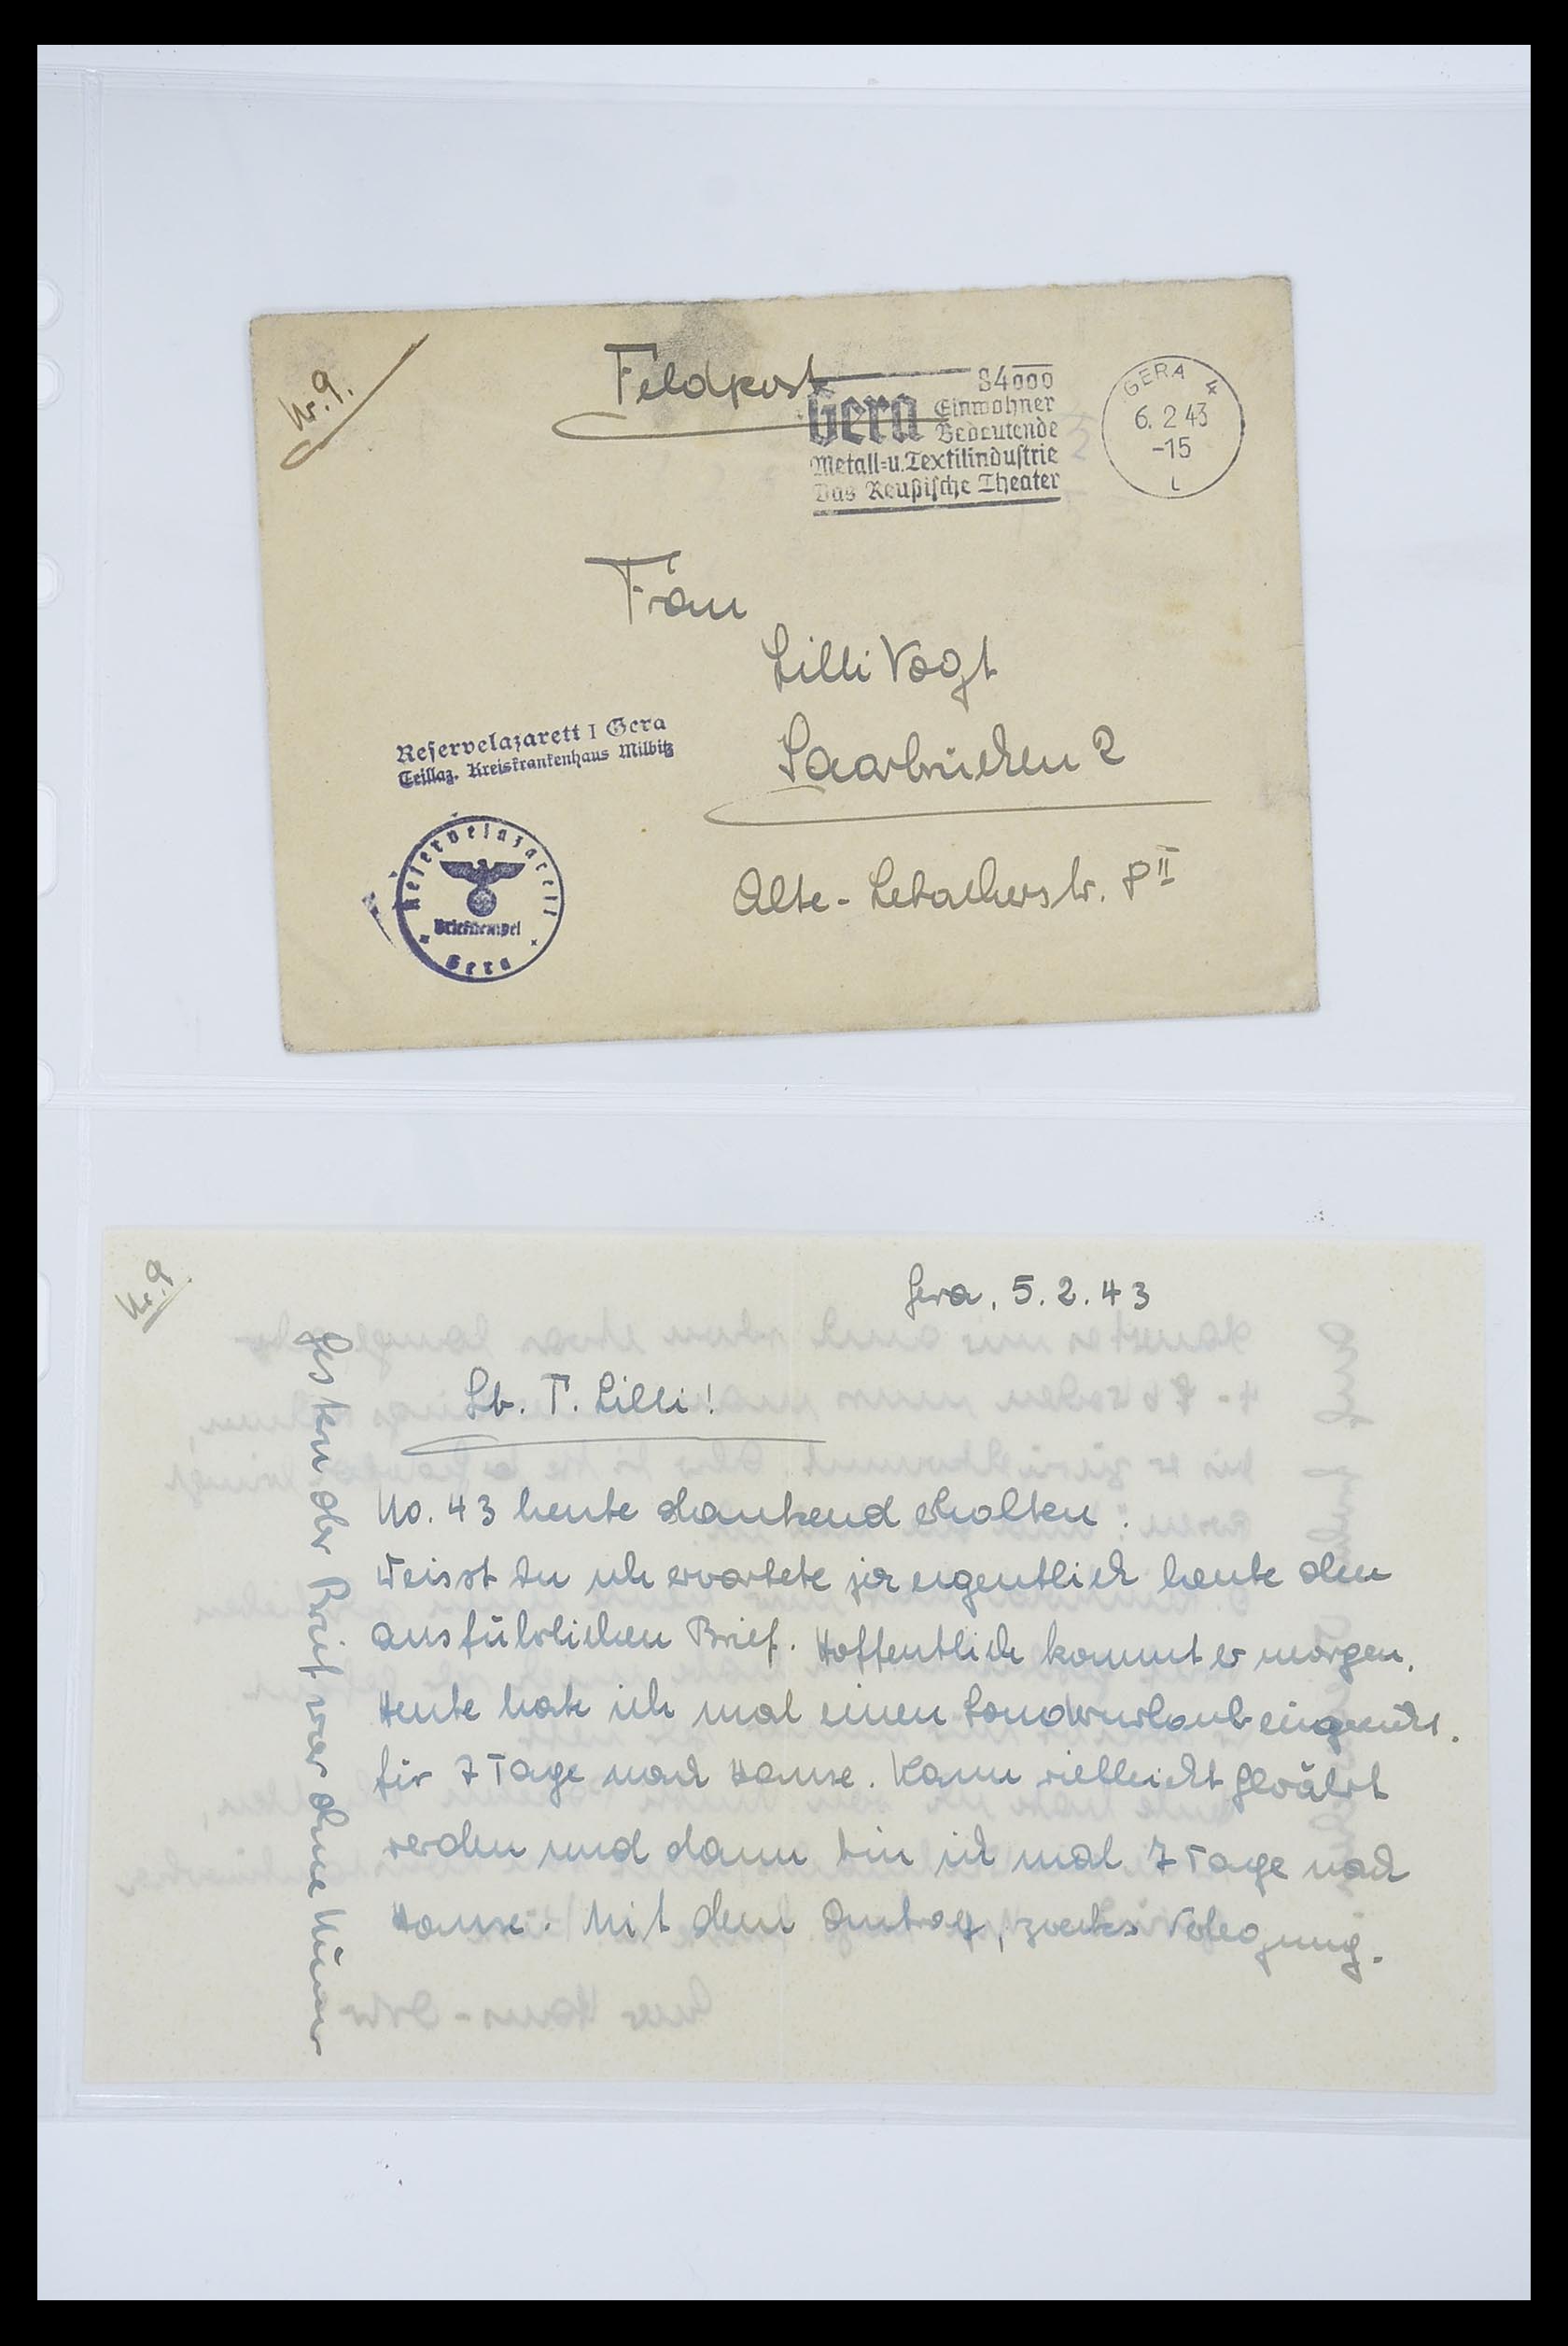 Nr. 9.
Feldpost
Gera
84000
Einwohner
Bedeutende
Metall=u.Textilindustrie
Das Reußische Theater
GERA 4
6. 2 43
-15
Frau
Lilli Vogt
Saarbrücken 2
Alte-Lebacherstr. 8 II
Reservelazarett I Gera
Teillaz. Kreiskrankenhaus Milbitz
Reservelazarett
Briefstempel
Gera
Nr. 9.
Gera, 5. 2. 43
Lb. T. Lilli!
No. 43 heute dankend erhalten.
Weisst Du ich erwartete ja eigentlich heute den
ausführlichen Brief. Hoffentlich kommt er morgen.
Heute habe ich mal einen Sonderurlaub eingereicht.
für 7 Tage nach Hause. Kann vielleicht gewährt
werden und dann bin ich mal 7 Tage nach
Hause. Mit dem Antrag, zwecks Verlegung.
der Brief war ohne